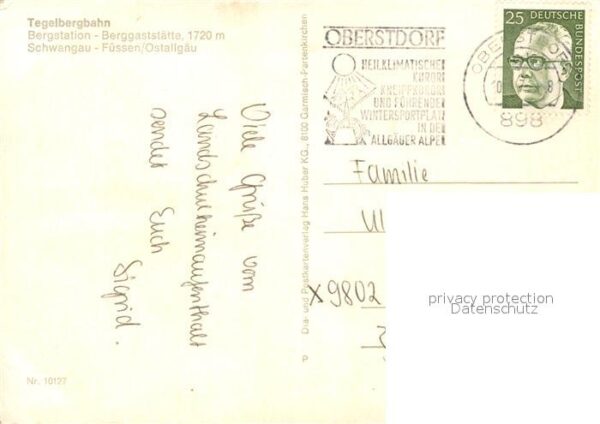 Tegelbergbahn
Bergstation - Berggaststätte, 1720 m
Schwangau - Füssen/Ostallgäu
Viele Grüße vom
Landschulheimaufenthalt
sendet Euch
Sigrid.
Nr. 10127
Dia- und Postkartenverlag Hans Huber KG., 8100 Garmisch-Partenkirchen
OBERSTDORF
HEILKLIMATISCHER
KURORT
KNEIPPKURORT
UND FÜHRENDER
WINTERSPORTPLATZ
IN DEN
ALLGÄUER ALPEN
OBERSTDORF
898
25 DEUTSCHE
BUNDESPOST
Familie
Ul
X 9802
privacy protection
Datenschutz